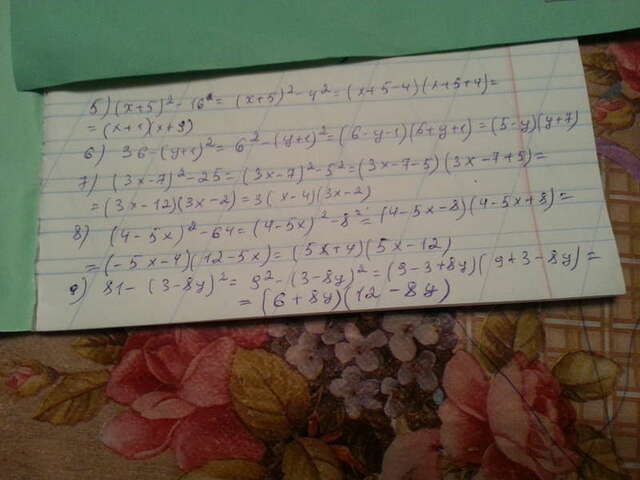 5) (x+5)² - 16 = (x+5)² - 4² = (x+5-4)(x+5+4)=
= (x+1)(x+9)
6) 36-(y+1)² = 6² - (y+1)² = (6-y-1)(6+y+1) = (5-y)(y+7)
7) (3x-7)² - 25 = (3x-7)² - 5² = (3x-7-5)(3x-7+5)=
= (3x-12)(3x-2) = 3(x-4)(3x-2)
8) (4-5x)² - 64 = (4-5x)² - 8² = (4-5x-8)(4-5x+8)=
= (-5x-4)(12-5x) = (5x+4)(5x-12)
9) 81 - (3-8y)² = 9² - (3-8y)² = (9-3+8y)(9+3-8y)=
= (6+8y)(12-8y)